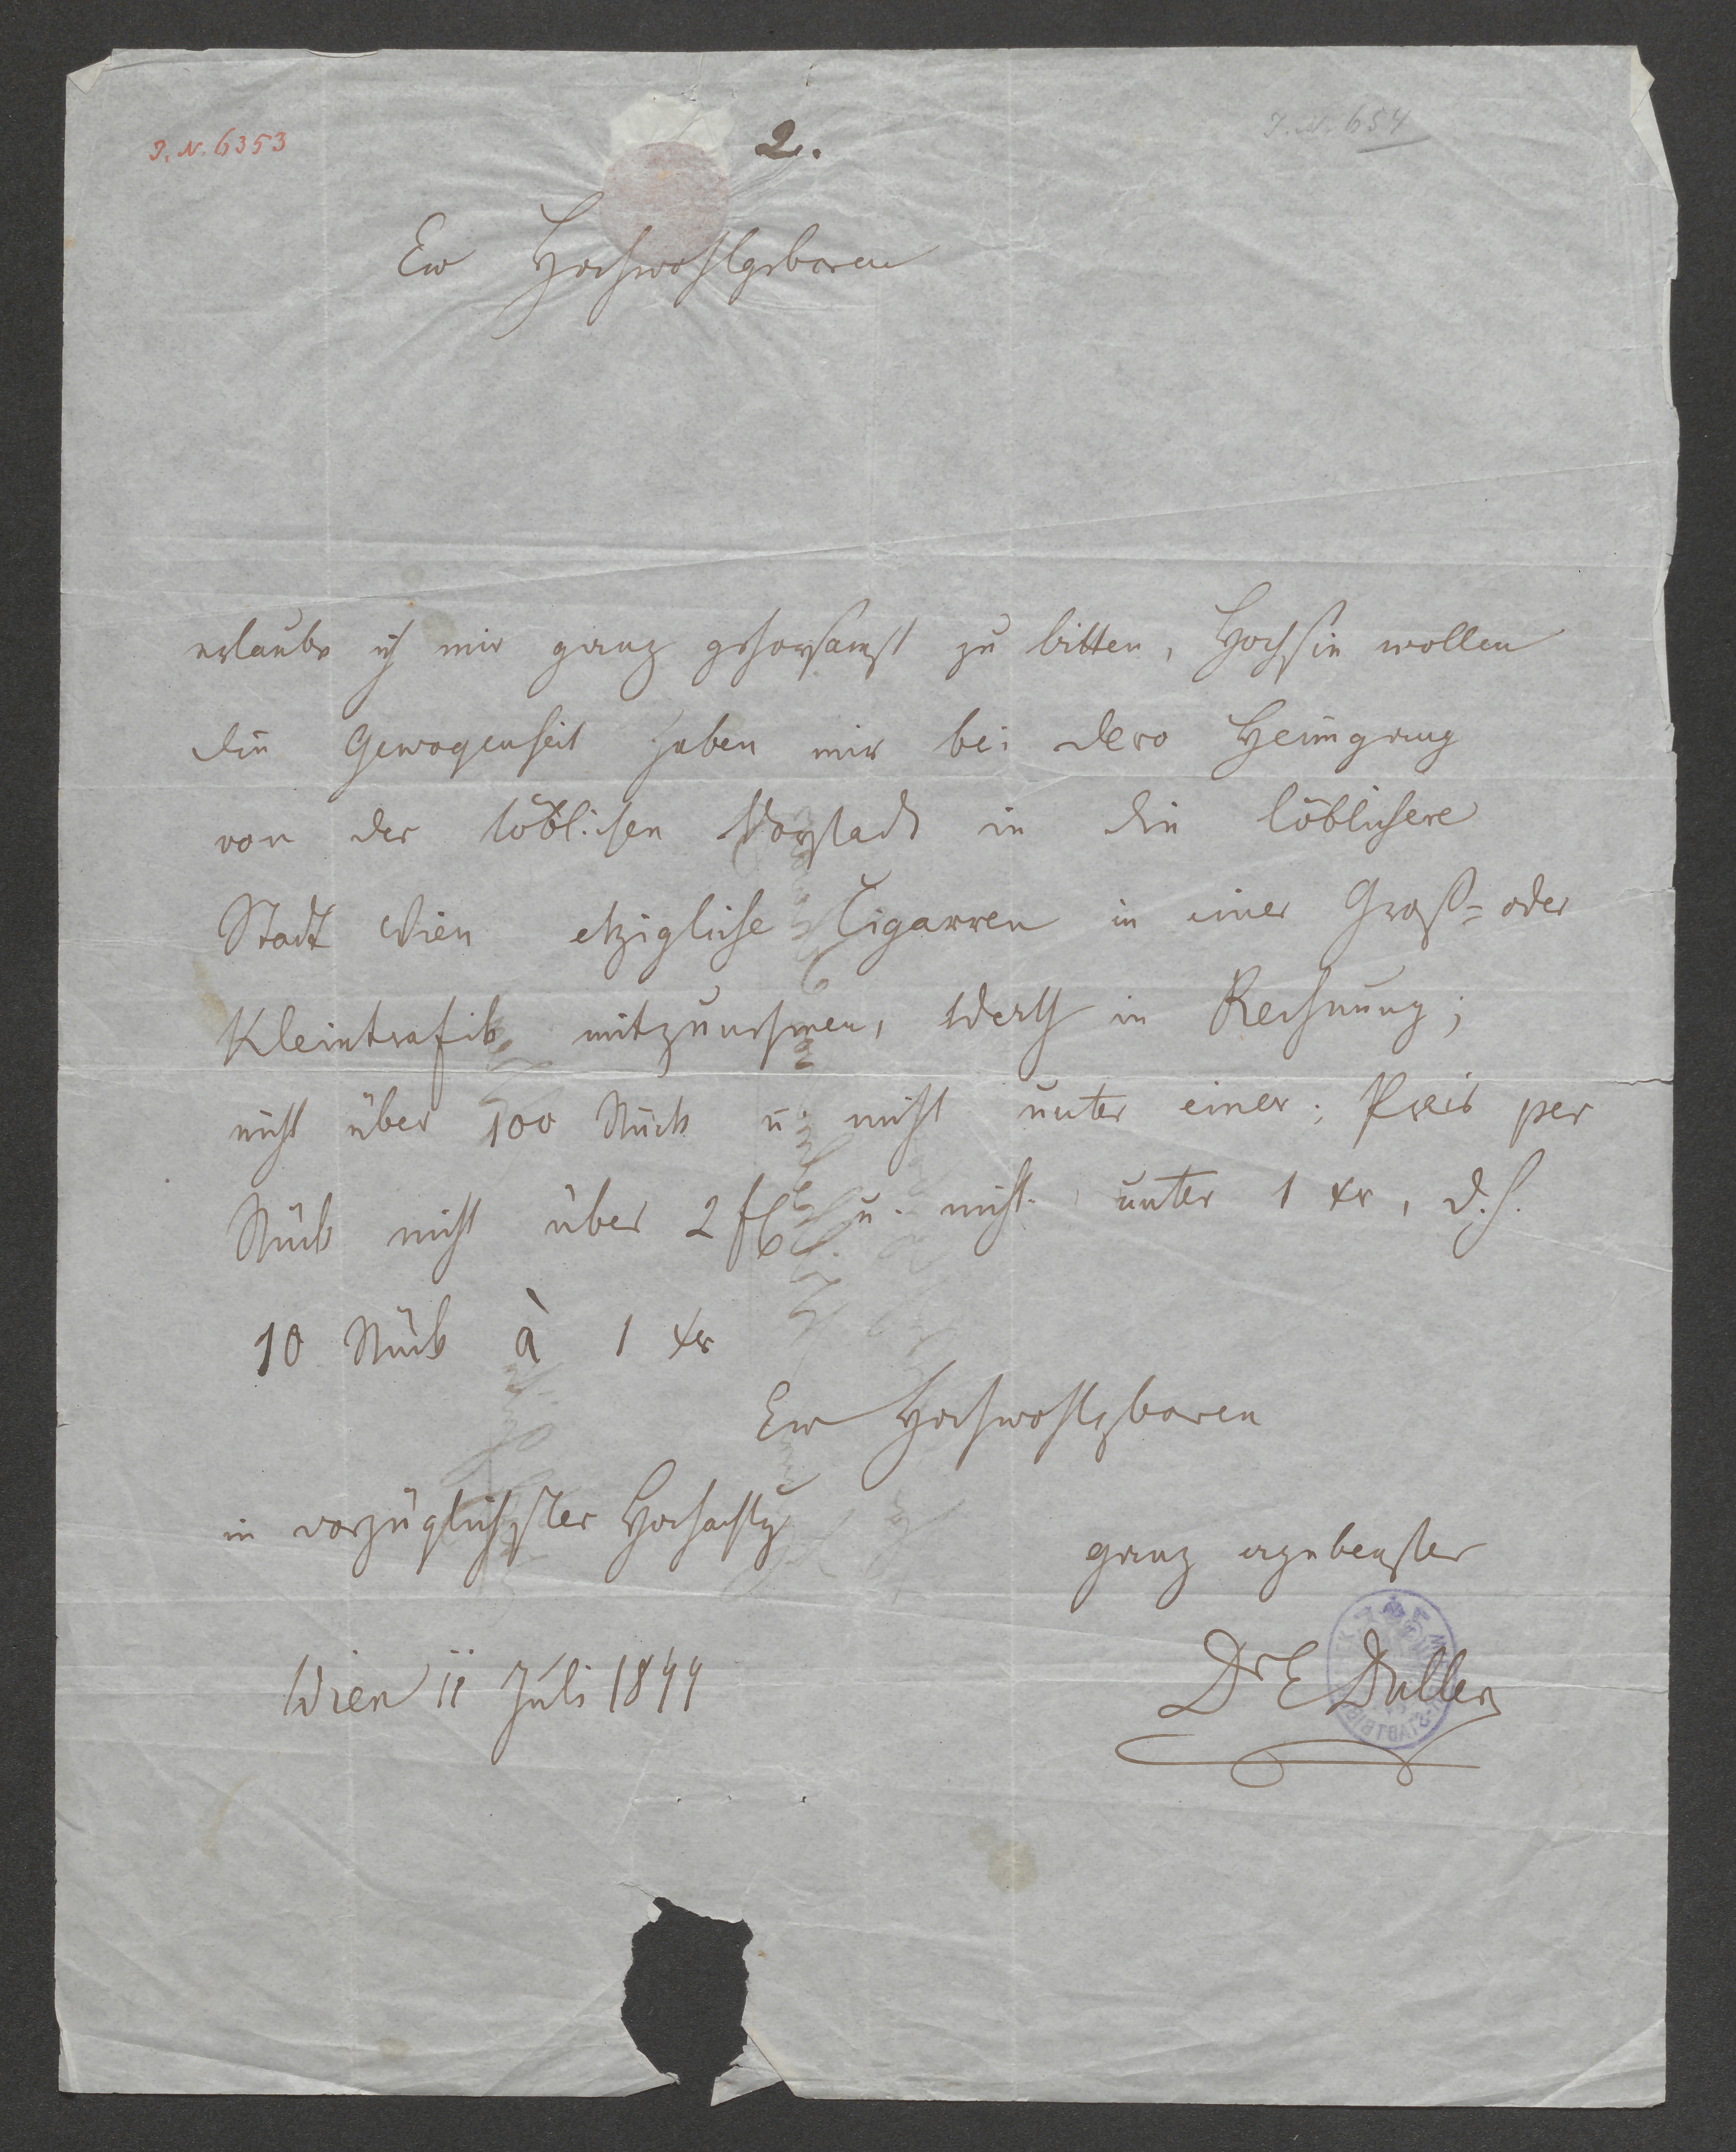 I. N. 6353
2.
I. N. 654
Ew Hochwohlgeboren
erlaube ich mir ganz gehorsamst zu bitten, Hochsie wollen
die Gewogenheit haben mir bei dero Heimgang
von der löblichen Vorstadt in die löblichere
Stadt Wien etzigliche Cigarren in einer Groß= oder
Kleintrafik mitzunehmen, Werth in Rechnung;
nicht über 100 Stück u nicht unter einer; Preis per
Stück nicht über 2 fl u. nicht unter 1 xr, d. h.
10 Stück à 1 xr
Ew Hochwohlgeboren
in vorzüglichster Hochachtg
ganz ergebenster
Wien 11 Juli 1844
Dr E Duller